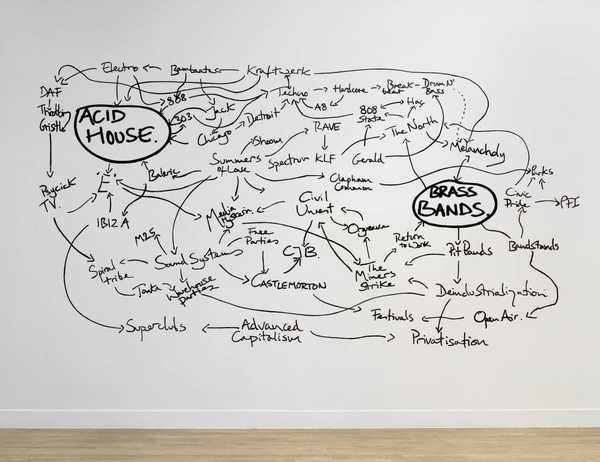 Electro
Bambaataa
Kraftwerk
DAF
Throbbing
Gristle
808
Techno
Hardcore
Break-
beat
Drum N'
Bass
ACID
HOUSE.
303
Jack
A8
Hag
Chicago
Detroit
808
State
The North
Shoom
RAVE
Melancholy
Summers
of Love
Spectrum
KLF
Gerald
Balaric
Clapham
Common
Parks
Psycick
TV.
'E'
IBIZA
Media
Hysteria
Civil
Unrest
Orgreave
BRASS
BANDS.
Civic
Pride
PFI
M25
Free
Parties
C J B.
Return
to Work
Pit Bands
Bandstands
Spiral
tribe
Sound Systems
The
Miners
Strike
Tonka
Warehouse
parties
CASTLEMORTON
Deindustrialization
Superclubs
Advanced
Capitalism
Festivals
Open Air.
Privatisation